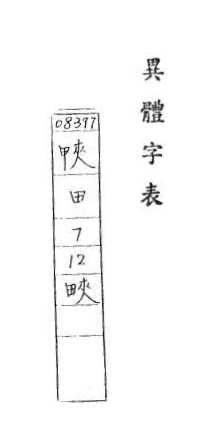 異體字表
08397
田
7
12